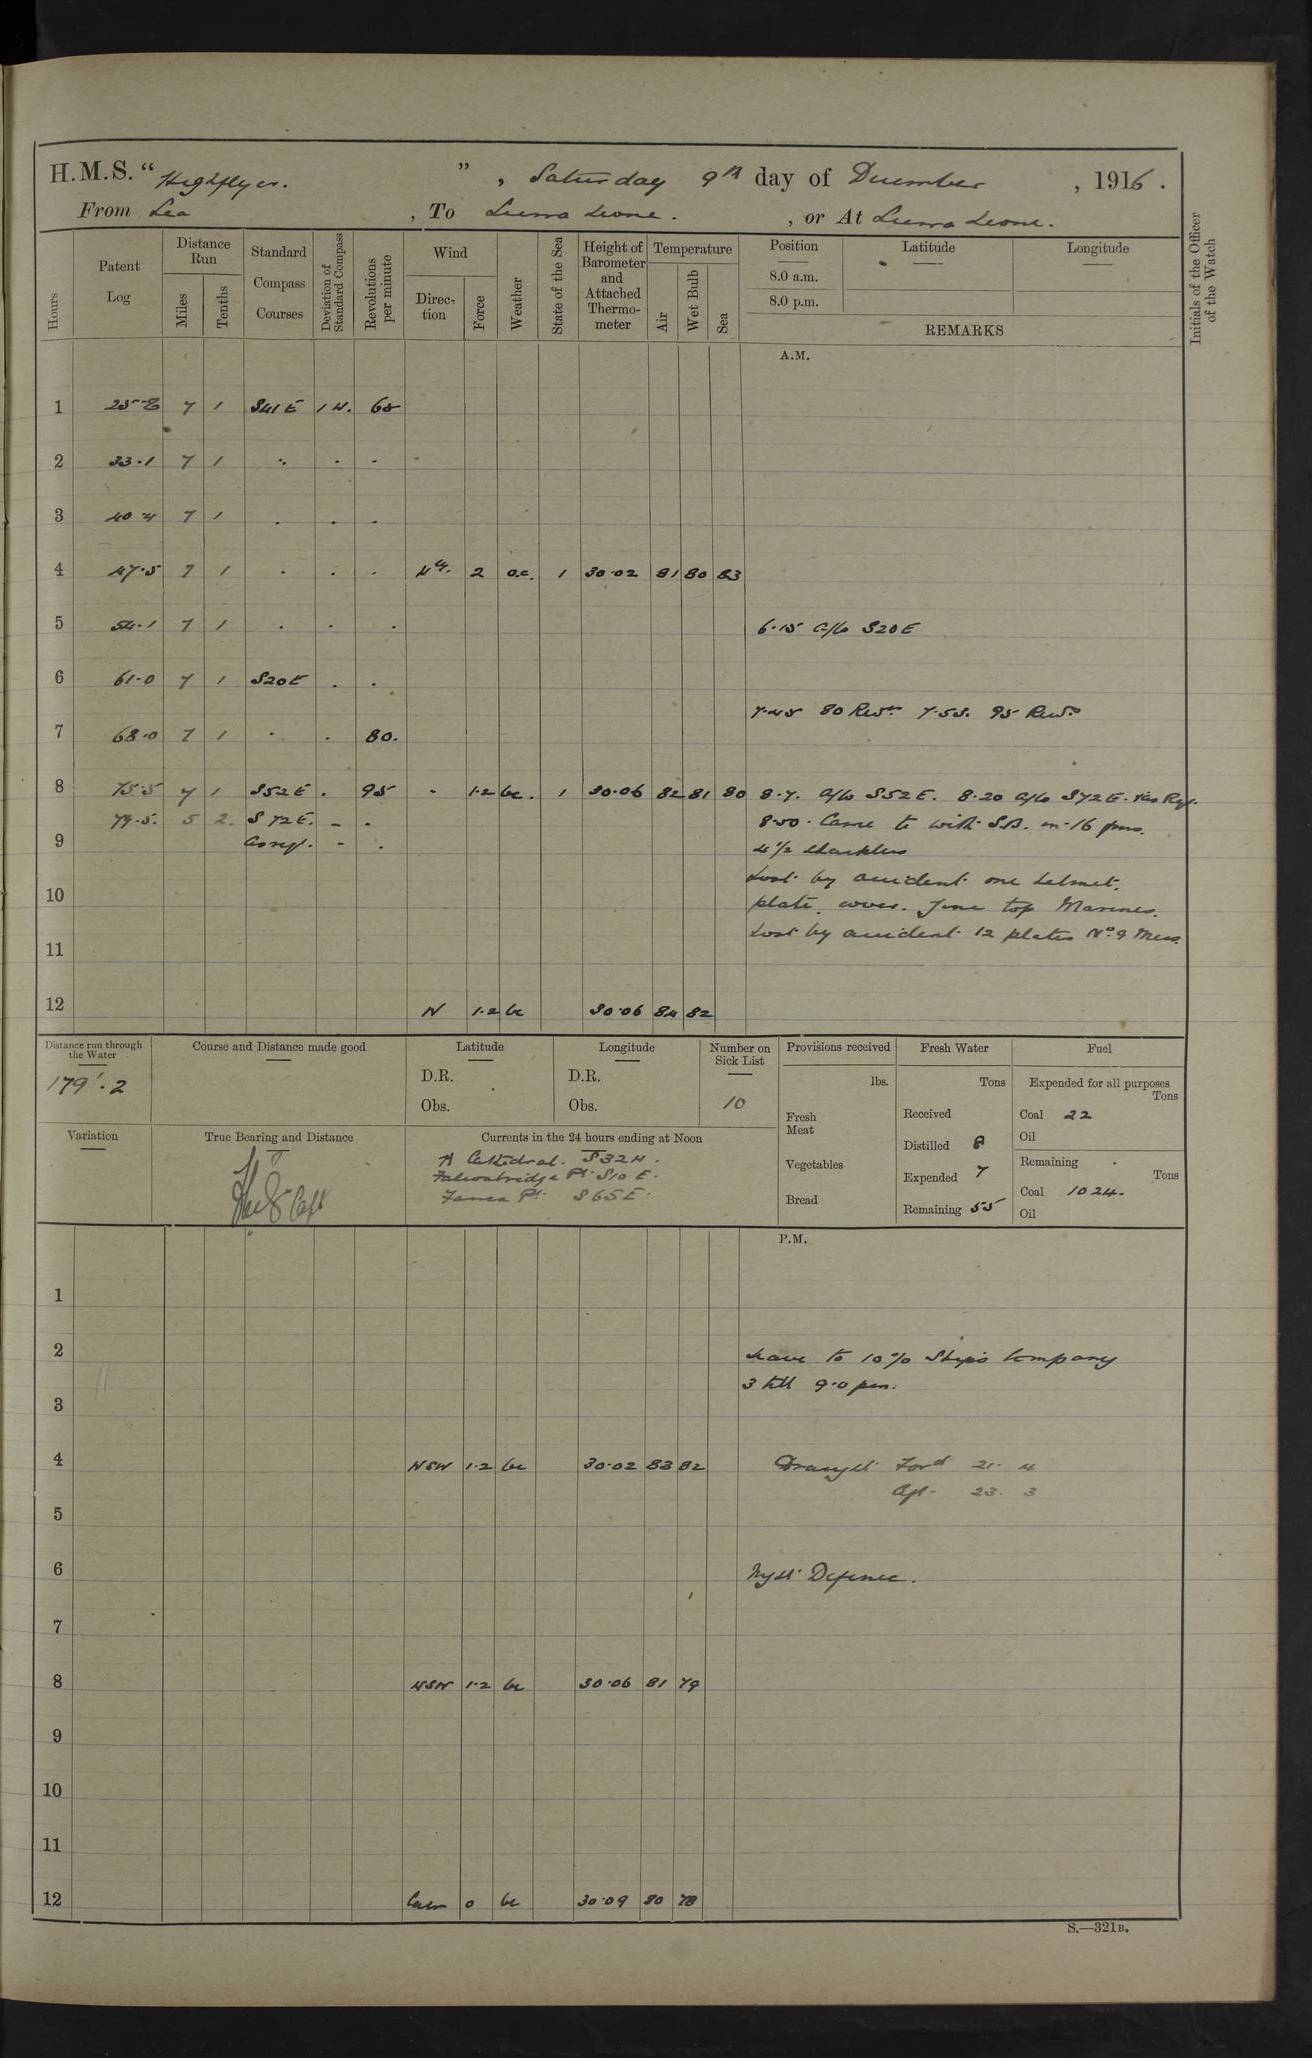 H.M.S. "Highflyer.", Saturday 9th day of December, 1916.
From Sea, To Sierra Leone., or At Sierra Leone.
Hours Patent Log Distance Run Miles Tenths Standard Compass Courses Deviation of Standard Compass Revolutions per minute Wind Direction Force Weather State of the Sea Height of Barometer and Attached Thermometer Temperature Air Wet Bulb Sea Position Latitude Longitude
8.0 a.m.
8.0 p.m.
REMARKS
Initials of the Officer of the Watch
A.M.
1 25.8 7 1 S41E 1W. 65
2 33.1 7 1
3 40.4 7 1 . . .
4 47.5 7 1 . . . 2 o.c. 1 30.02 81 80 83
5 54.1 7 1 . . . 6.15 a/c S20E
6 61.0 7 1 S20E . .
7.45 80 Revs. 7.55. 95 Revs.
7 68.0 7 1 . . 80.
8 75.5 7 1 S52E . 95 1.2 bc. 1 30.06 82 81 80 8.7. a/c S52E. 8.20 a/c S72E.
79.5. 5 2. S72E. 8.50. Came to with S.B. in 16 fms.
9 As req. 4 1/2 shackles
Lost by accident one helmet,
10 plate, cover. Marines.
Lost by accident 12 plates No. 9 Mess.
11
12 N 1.2 bc 30.06 84 82
Distance run through the Water Course and Distance made good Latitude Longitude Number on Sick List Provisions received Fresh Water Fuel
179'.2
D.R. D.R. lbs. Tons Expended for all purposes Tons
Obs. Obs. 10 Fresh Meat Received Coal 22
Variation True Bearing and Distance Currents in the 24 hours ending at Noon Distilled 8 Oil
Cathedral. S32W.
Vegetables Expended 7 Remaining Tons
Falconbridge Pt. S10E.
Pt. S65E. Bread Remaining 55 Coal 1024.
Capt Oil
P.M.
1
2 Leave to 10% Ship's Company
3 till 9.0 pm.
3
4 WSW 1.2 bc 30.02 83 82 Draught Ford 21. 4
Aft. 23. 3
5
6 Night Defence.
7
8 WSW 1.2 bc 30.06 81 79
9
10
11
12 Calm 0 bc 30.09 80 78
S.—321B.